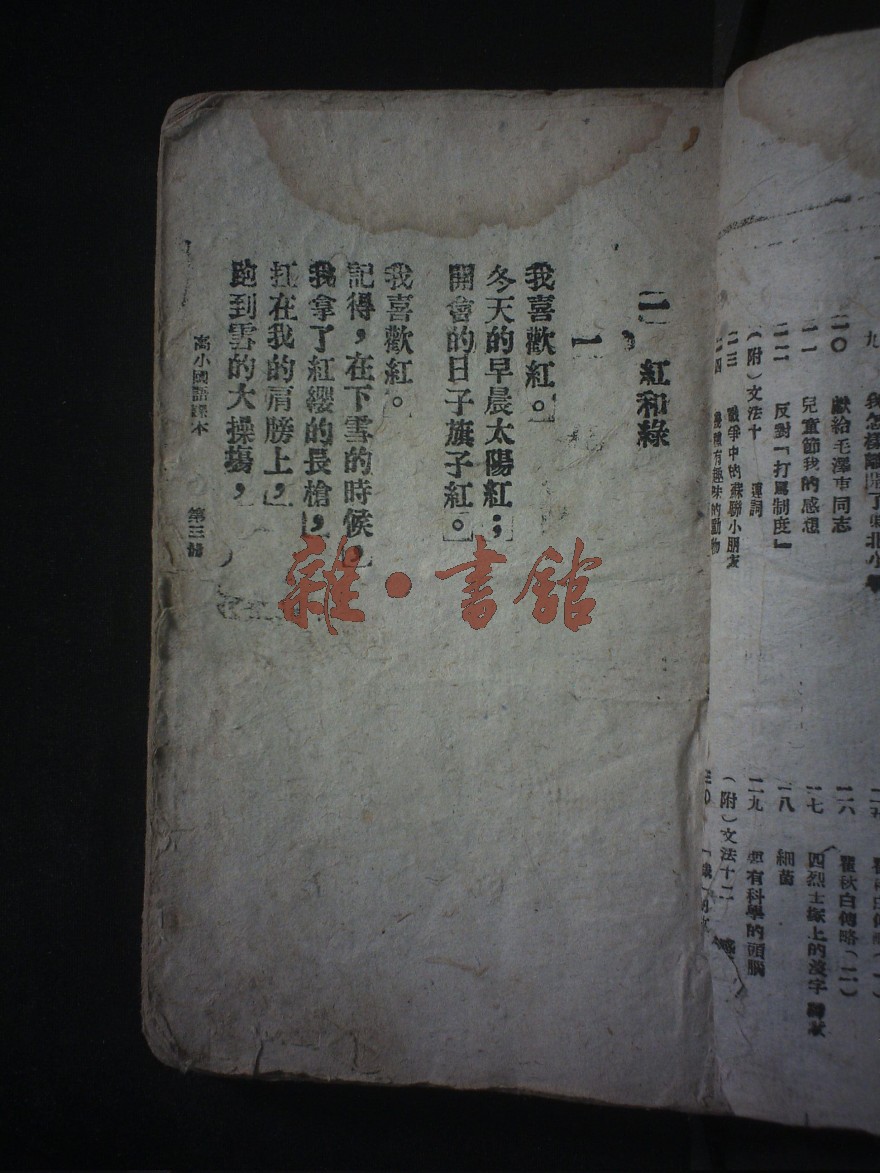 我怎樣離開了東北小學
二〇 獻給毛澤東同志
二一 兒童節我的感想
二二 反對「打罵制度」
(附)文法十 連詞
二三 戰爭中的蘇聯小朋友
二四 幾種有趣味的動物
二六 瞿秋白傳略(二)
二七 四烈士塚上的沒字
二八 細菌
二九 要有科學的頭腦
(附)文法十二
三〇
二、紅和綠
一
我喜歡紅。
冬天的早晨太陽紅;
開會的日子旗子紅。
我喜歡紅。
記得,在下雪的時候,
我拿了紅纓的長槍,
扛在我的肩膀上,
跑到雪的大操場,
高小國語課本 第三冊
雜·書館